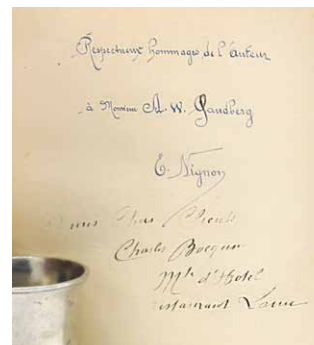 Respectueux hommages de l'auteur
à Monsieur A. W. Sandberg
E. Nignon
Charles Bocquet
Mtre d'Hotel
Restaurant Larue